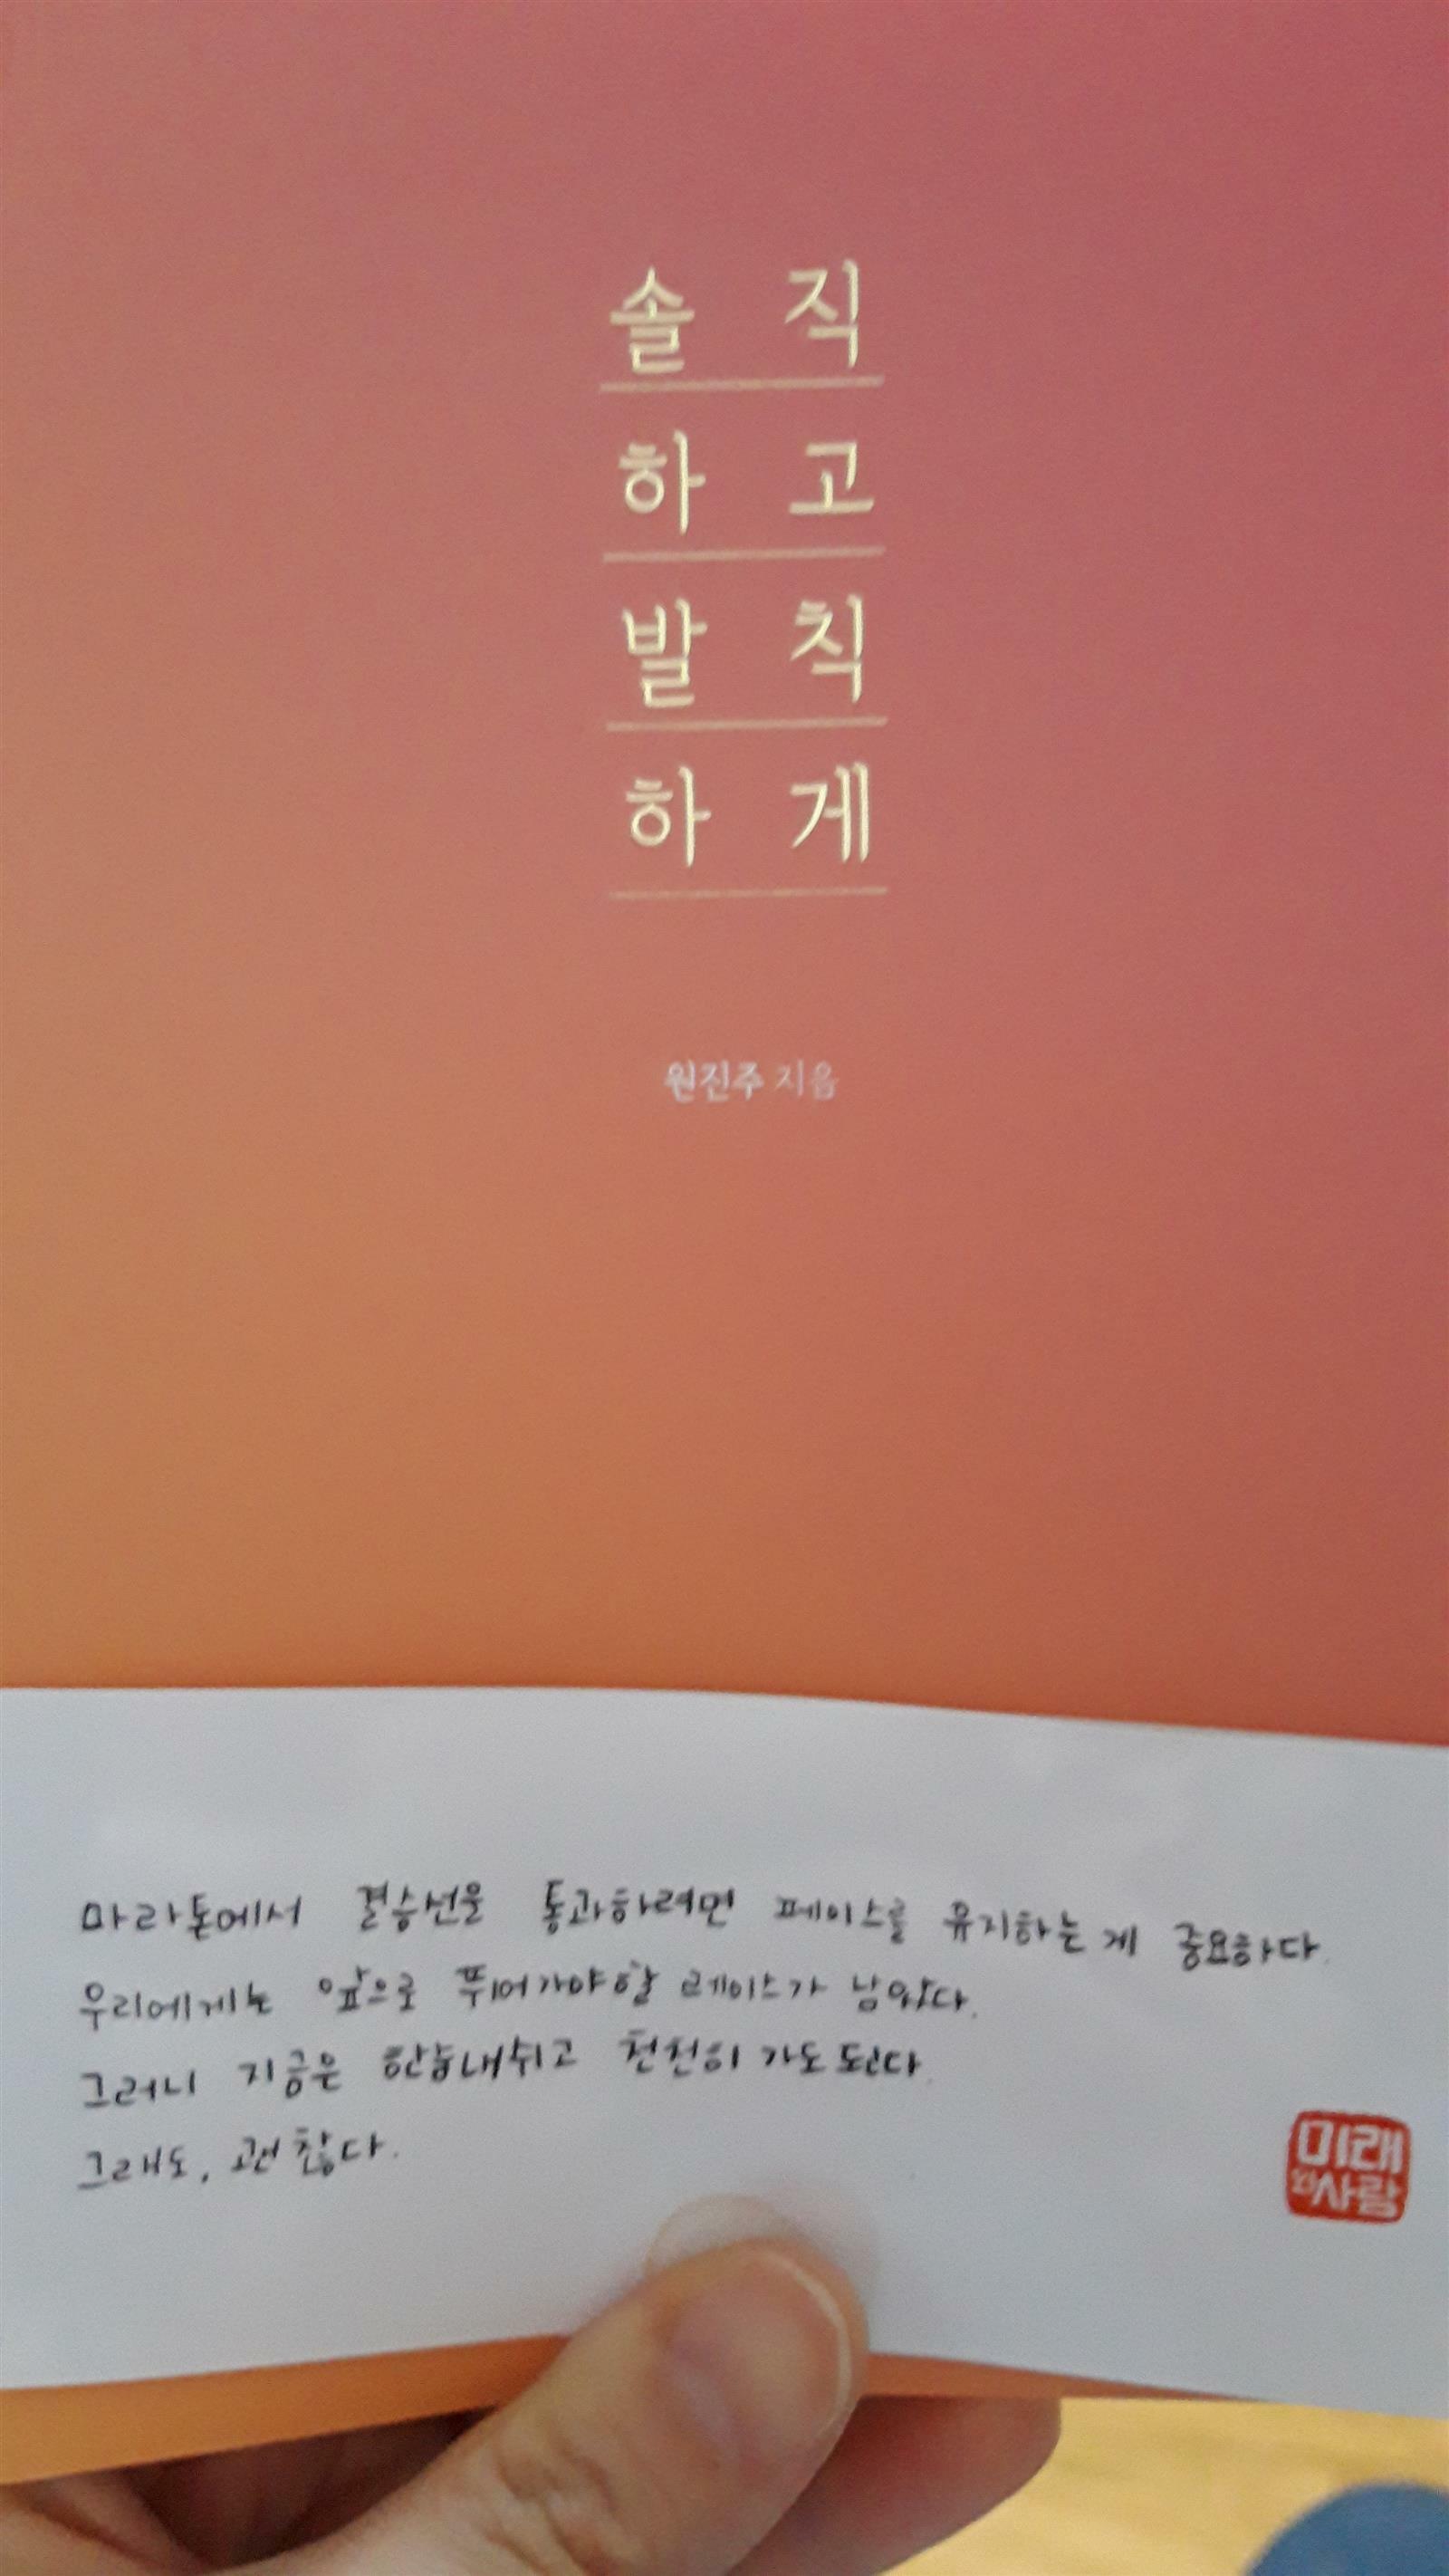 솔 직
하 고
발 칙
하 게
원진주 지음
마라톤에서 결승선을 통과하려면 페이스를 유지하는 게 중요하다.
우리에게는 앞으로 뛰어가야할 레이스가 남았다.
그러니 지금은 한숨내쉬고 천천히 가도 된다.
그래도, 괜찮다.
미래
와사람